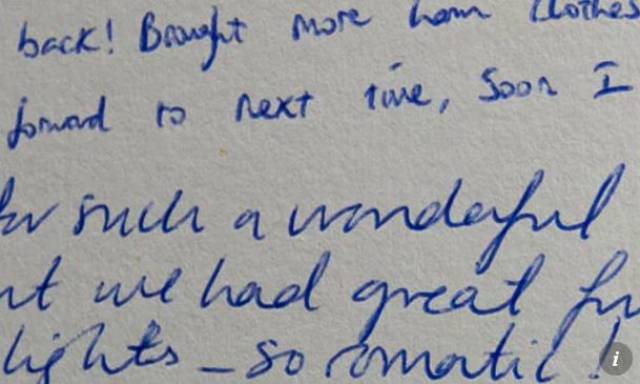 back! Brought more warm clothes
forward to next time, Soon I
for such a wonderful
we had great
lights – so romatic!